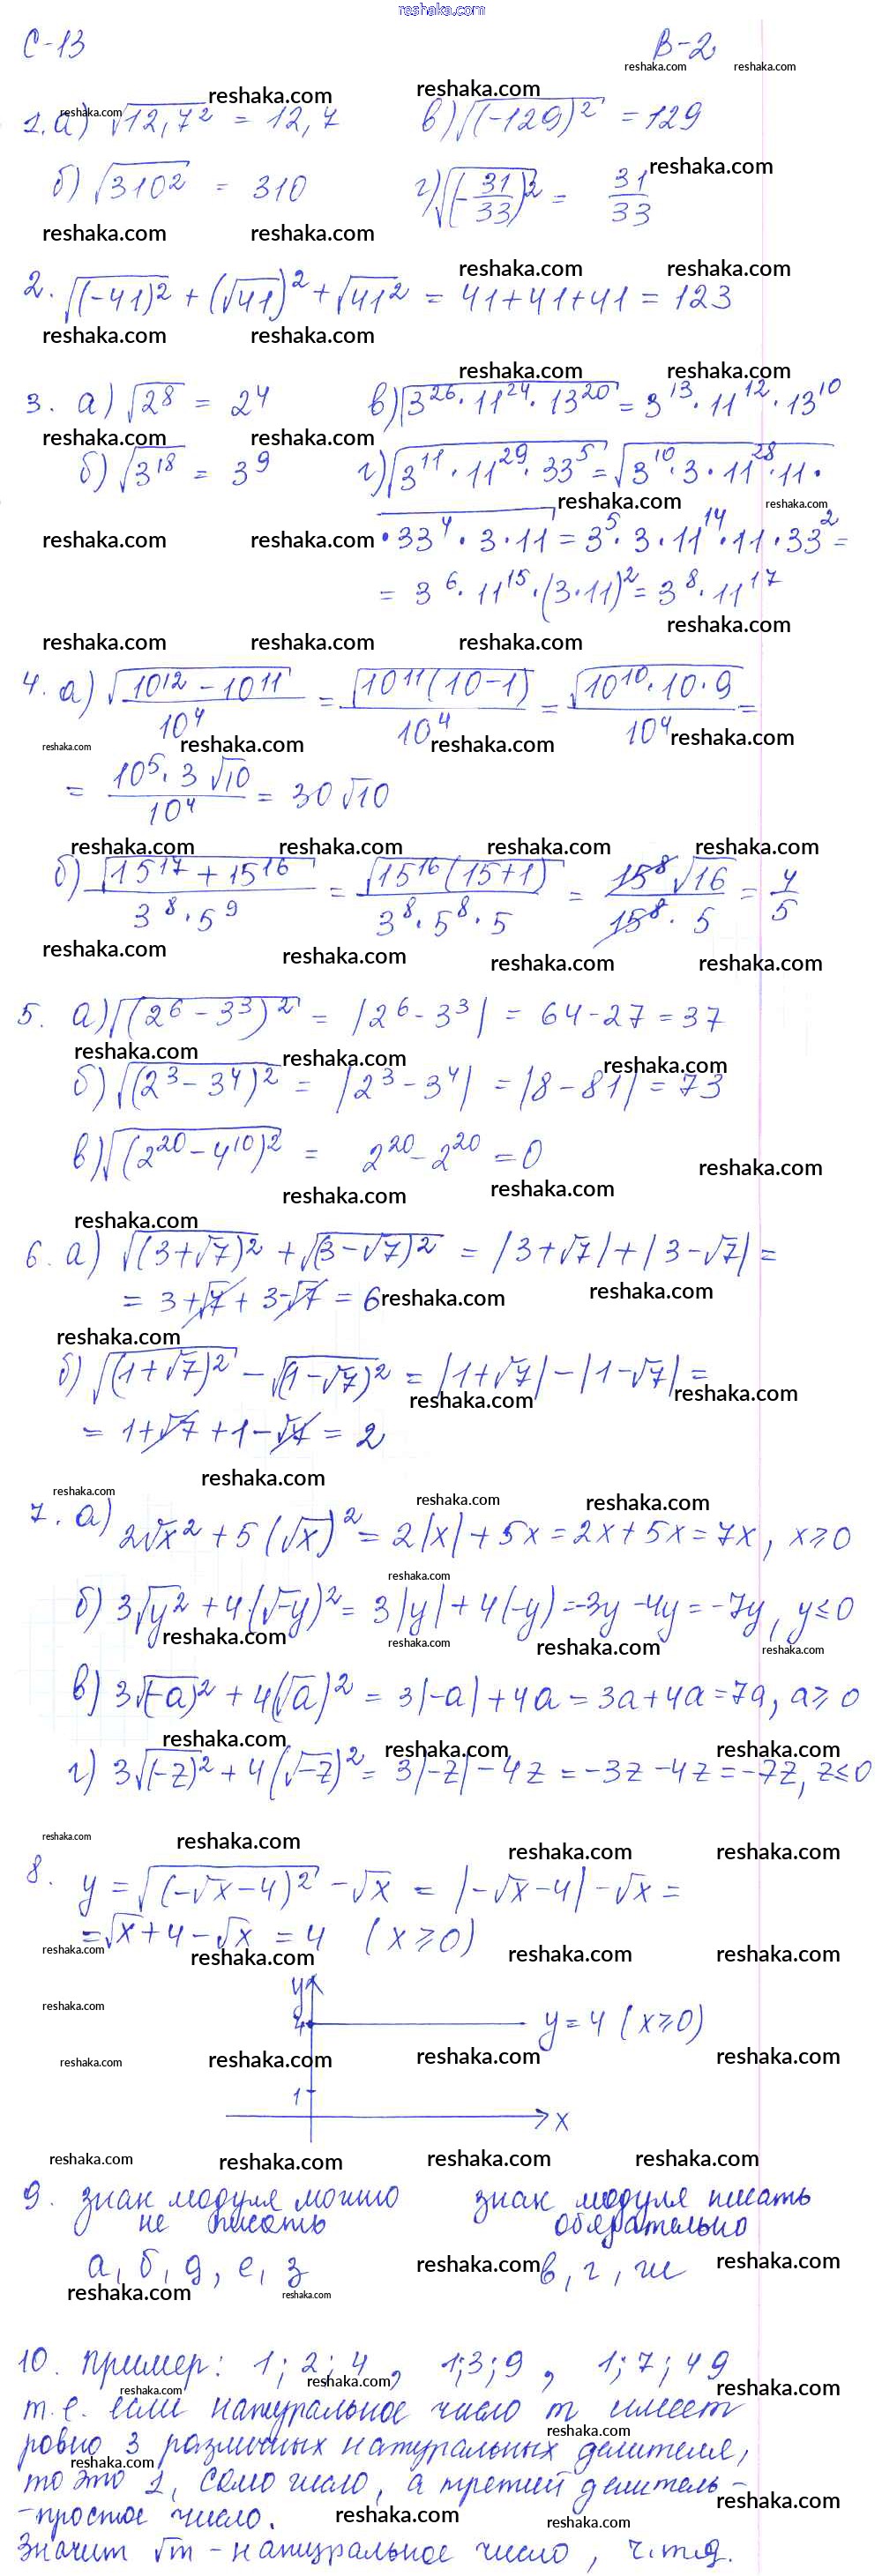 reshaka.com
С-13 В-2
1. а) √12,7² = 12,7 в) √(-129)² = 129
б) √310² = 310 г) √(-31/33)² = 31/33
2. √(-41)² + (√41)² + √41² = 41+41+41 = 123
3. а) √2⁸ = 2⁴ в) √3²⁶·11²⁴·13²⁰ = 3¹³·11¹²·13¹⁰
б) √3¹⁸ = 3⁹ г) √3¹¹·11²⁹·33⁵ = √3¹⁰·3·11²⁸·11·
·33⁴·3·11 = 3⁵·3·11¹⁴·11·33² =
= 3⁶·11¹⁵·(3·11)² = 3⁸·11¹⁷
4. а) √10¹² - 10¹¹ / 10⁴ = √10¹¹(10-1) / 10⁴ = √10¹⁰·10·9 / 10⁴ =
= 10⁵·3√10 / 10⁴ = 30√10
б) √15¹⁷ + 15¹⁶ / 3⁸·5⁹ = √15¹⁶(15+1) / 3⁸·5⁸·5 = 15⁸√16 / 15⁸·5 = 4/5
5. а) √(2⁶ - 3³)² = |2⁶ - 3³| = 64-27 = 37
б) √(2³ - 3⁴)² = |2³ - 3⁴| = |8-81| = 73
в) √(2²⁰ - 4¹⁰)² = 2²⁰ - 2²⁰ = 0
6. а) √(3+√7)² + √(3-√7)² = |3+√7| + |3-√7| =
= 3+√7 + 3-√7 = 6
б) √(1+√7)² - √(1-√7)² = |1+√7| - |1-√7| =
= 1+√7 + 1-√7 = 2
7. а) 2√x² + 5(√x)² = 2|x| + 5x = 2x+5x = 7x, x≥0
б) 3√y² + 4(√-y)² = 3|y| + 4(-y) = -3y - 4y = -7y, y≤0
в) 3√(-a)² + 4(√a)² = 3|-a| + 4a = 3a+4a = 7a, a≥0
г) 3√(-z)² + 4(√-z)² = 3|-z| - 4z = -3z - 4z = -7z, z≤0
8. y = √(-√x-4)² - √x = |-√x-4| - √x =
= √x+4-√x = 4 (x≥0)
y
4 y=4 (x≥0)
1
x
9. знак модуля можно знак модуля писать
не писать обязательно
а, б, д, е, з в, г, ж
10. Пример: 1; 2; 4, 1; 3; 9, 1; 7; 49
т.е. если натуральное число m имеет
ровно 3 различных натуральных делителя,
то это 1, само число, а третий делитель -
- простое число.
Значит √m - натуральное число, ч.т.д.